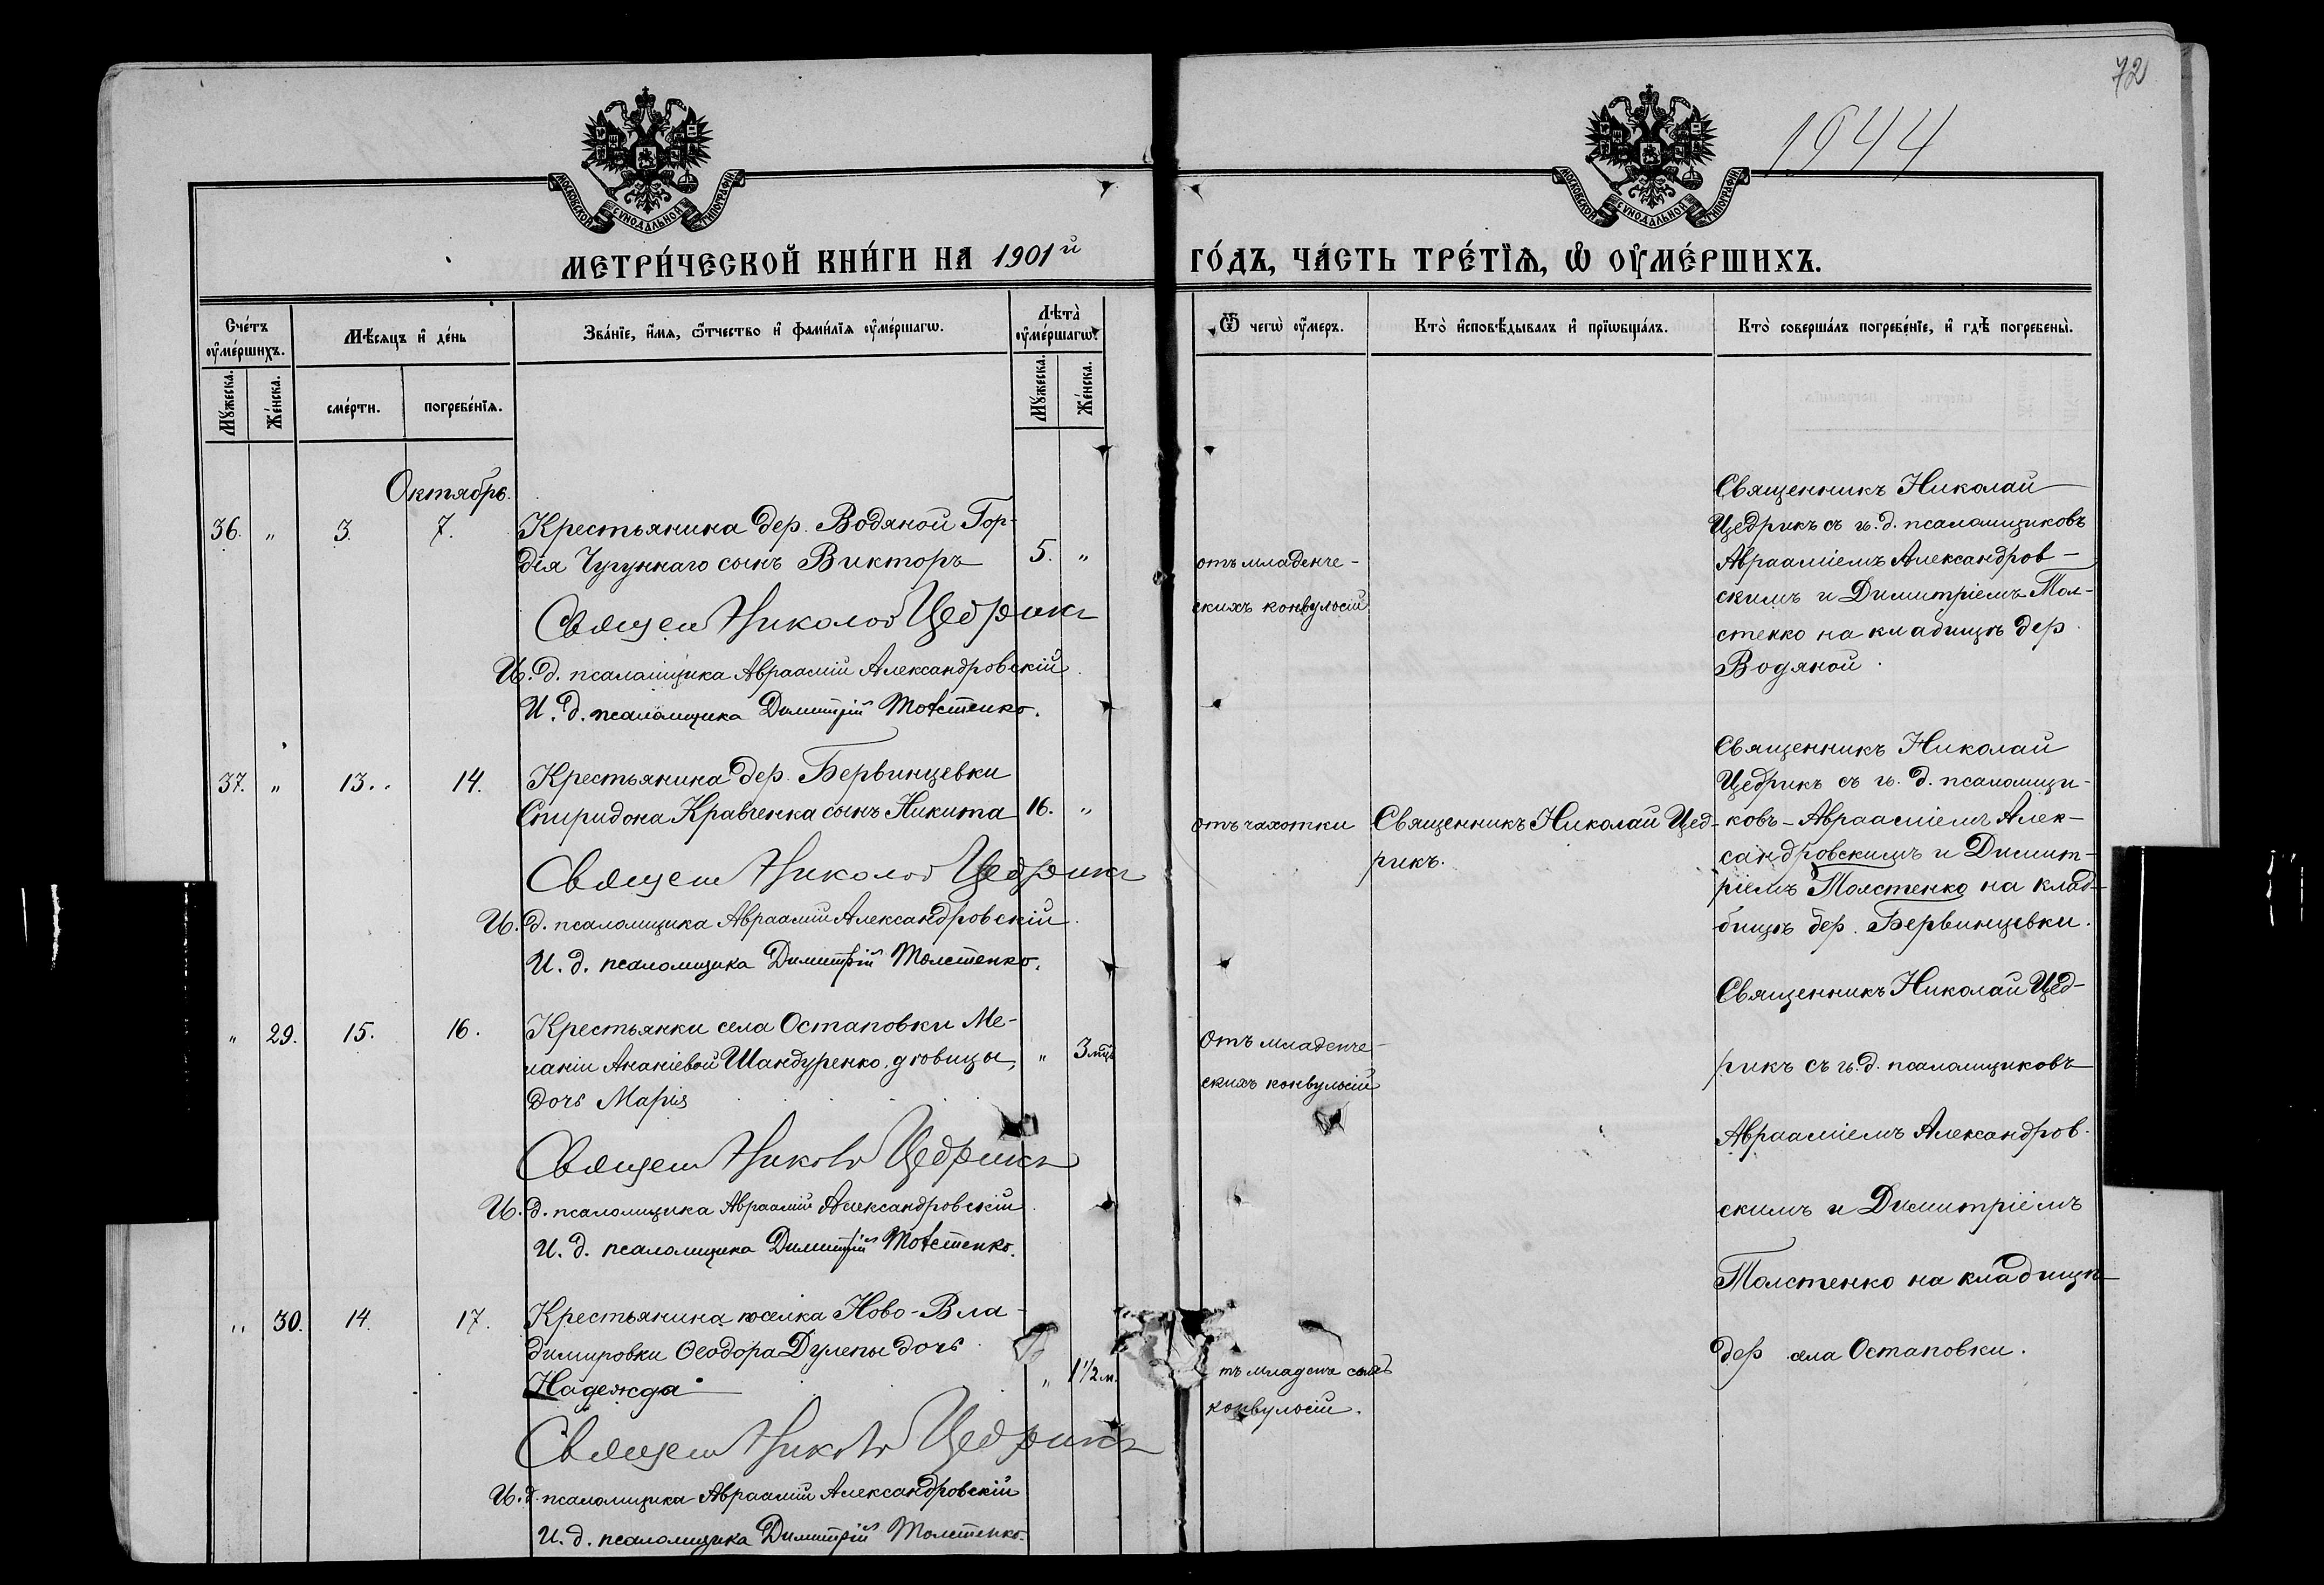 72
1944
МОСКОВСКОЙ СУНОДАЛЬНОЙ ТИПОГРАФІИ
МОСКОВСКОЙ СУНОДАЛЬНОЙ ТИПОГРАФІИ
МЕТРИ́ЧЕСКОЙ КНИ́ГИ НА 1901й ГО́ДЪ, ЧА́СТЬ ТРЕ́ТІѦ, Ѡ ОУМЕ́РШИХЪ.
Сче́тъ оумéршихъ.
Мѣ́сѧцъ и де́нь
Зва́нїе, и́мѧ, ѻ҆́тчество и фами́лїѧ оуме́ршагѡ.
Лѣта̀ оуме́ршагѡ.
Ѿ чегѡ̀ оу́меръ.
Кто̀ исповѣ́дывалъ и прїѡбща́лъ.
Кто̀ соверша́лъ погребе́нїе, и гдѣ̀ погребены̀.
Мꙋ́жеска.
Же́нска.
сме́рти.
погребе́нїѧ.
Мꙋ́жеска.
Же́нска.
Октябрь.
36. " 3. 7. Крестьянина дер. Водяной Гор-
дія Чугуннаго сынъ Викторъ 5. "
Священ Николай Цедрикъ
И. д. псаломщика Авраамій Александровскій.
И. д. псаломщика Димитрій Толстенко.
отъ младенче-
скихъ конвульсій
Священникъ Николай
Цедрикъ съ и. д. псаломщиковъ
Авраамiемъ Александров-
скимъ и Димитріемъ Тол-
стенко на кладбищѣ дер.
Водяной.
37. " 13. 14. Крестьянина дер. Бервинцевки
Спиридона Кравченка сынъ Никита 16. "
Священ Николай Цедрикъ
И. д. псаломщика Авраамій Александровскій.
И. д. псаломщика Димитрій Толстенко.
отъ чахотки
Священникъ Николай Цед-
рикъ.
Священникъ Николай
Цедрикъ съ и. д. псаломщи-
ковъ - Авраамiемъ Алек-
сандровскимъ и Димит-
ріемъ Толстенко на клад-
бищѣ дер. Бервинцевки.
" 29. 15. 16. Крестьянки села Остаповки Ме-
ланіи Ананіевой Шандуренко, дѣвицы,
дочь Марія " 3 мцъ
Священ Николай Цедрикъ
И. д. псаломщика Авраамій Александровскій
И. д. псаломщика Димитрій Толстенко.
Отъ младенче-
скихъ конвульсій
Священникъ Николай Цед-
рикъ съ и. д. псаломщиковъ
Авраамiемъ Александров-
скимъ и Димитріемъ
Толстенко на кладбищѣ
дер села Остаповки.
" 30. 14. 17. Крестьянина поселка Ново-Вла-
димировки Ѳеодора Дулепы дочь
Надежда " 1 1/2 м.
Священ Николай Цедрикъ
И. д. псаломщика Авраамій Александровскій
И. д. псаломщика Димитрій Толстенко.
тъ младенче
конвульсій.